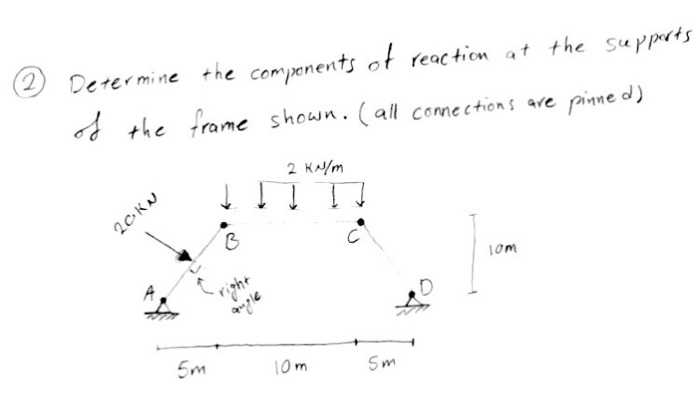 2 Determine the components of reaction at the supports
of the frame shown. (all connections are pinned)
2 KN/m
20KN
B
C
10m
A
right
angle
D
5m 10m 5m